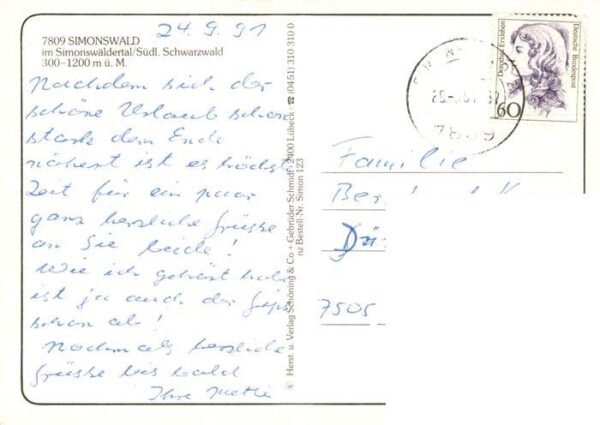 24.9.91
7809 SIMONSWALD
im Simonswäldertal/Südl. Schwarzwald
300–1200 m ü. M.
Nachdem sich der
schöne Urlaub schon
stark dem Ende
nähert ist es höchste
Zeit für ein paar
ganz herzliche Grüsse
an Sie beide!
Wie ich gehört habe
ist ja auch der Gips
schon ab!
Nochmals herzliche
Grüsse bis bald
Ihre
Herst. u. Verlag Schöning & Co + Gebrüder Schmidt · 2400 Lübeck · ☎ (04 51) 310 310 0
nz Bestell-Nr. Simon 123
Dorothea Erxleben
Deutsche Bundespost
60
Familie
7505